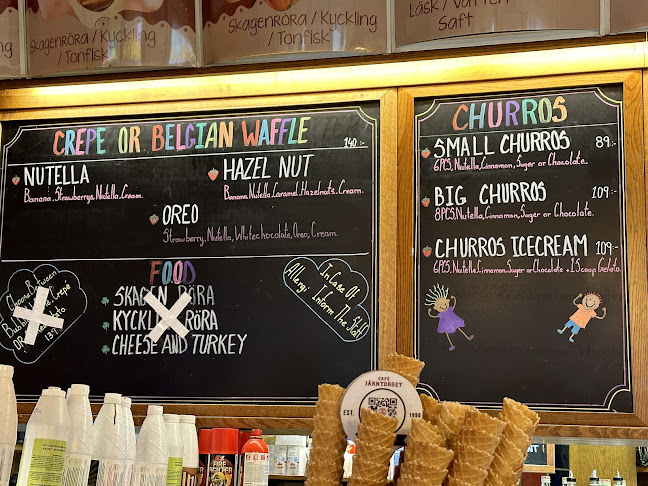 Skagenröra / Kyckling
/ Tonfisk
Skagenröra / Kyckling
/ Tonfisk
Läsk / Vatten
Saft
CRÊPE OR BELGIAN WAFFLE 140:-
NUTELLA
Banana, Strawberrys, Nutella, Cream.
HAZEL NUT
Banana, Nutella, Caramel, Hazelnuts, Cream.
OREO
Strawberry, Nutella, White chocolate, Oreo, Cream.
FOOD
SKAGEN RÖRA
KYCKLING RÖRA
CHEESE AND TURKEY
Choose Between
Crepe
OR
139:-
In Case Of
Allergy, Inform The Staff
CHURROS
SMALL CHURROS 89:-
6PCS, Nutella, Cinnamon, Suger or Chocolate.
BIG CHURROS 109:-
8PCS, Nutella, Cinnamon, Suger or Chocolate.
CHURROS ICECREAM 109:-
6PCS, Nutella, Cinnamon, Suger or Chocolate, 1 Scoop Gelato.
CAFÉ
JÄRNTORGET
EST. 1896
FIRE
EATER